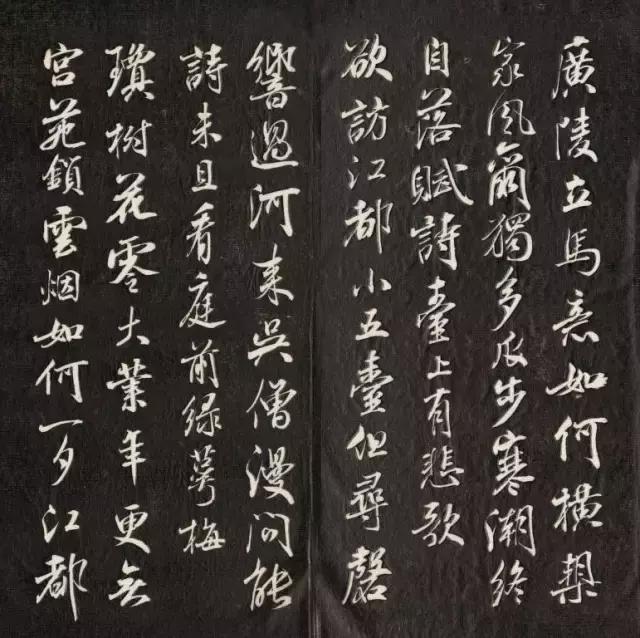 廣陵立馬意如何橫槊
家風爾獨多瓜步寒潮終
自落賦詩臺上有悲歌
欲訪江都小五臺但尋磬
響過河來吳僧漫問能
詩未且看庭前緑萼梅
瓊樹花零大業年更無
宮苑鎖雲烟如何一夕江都